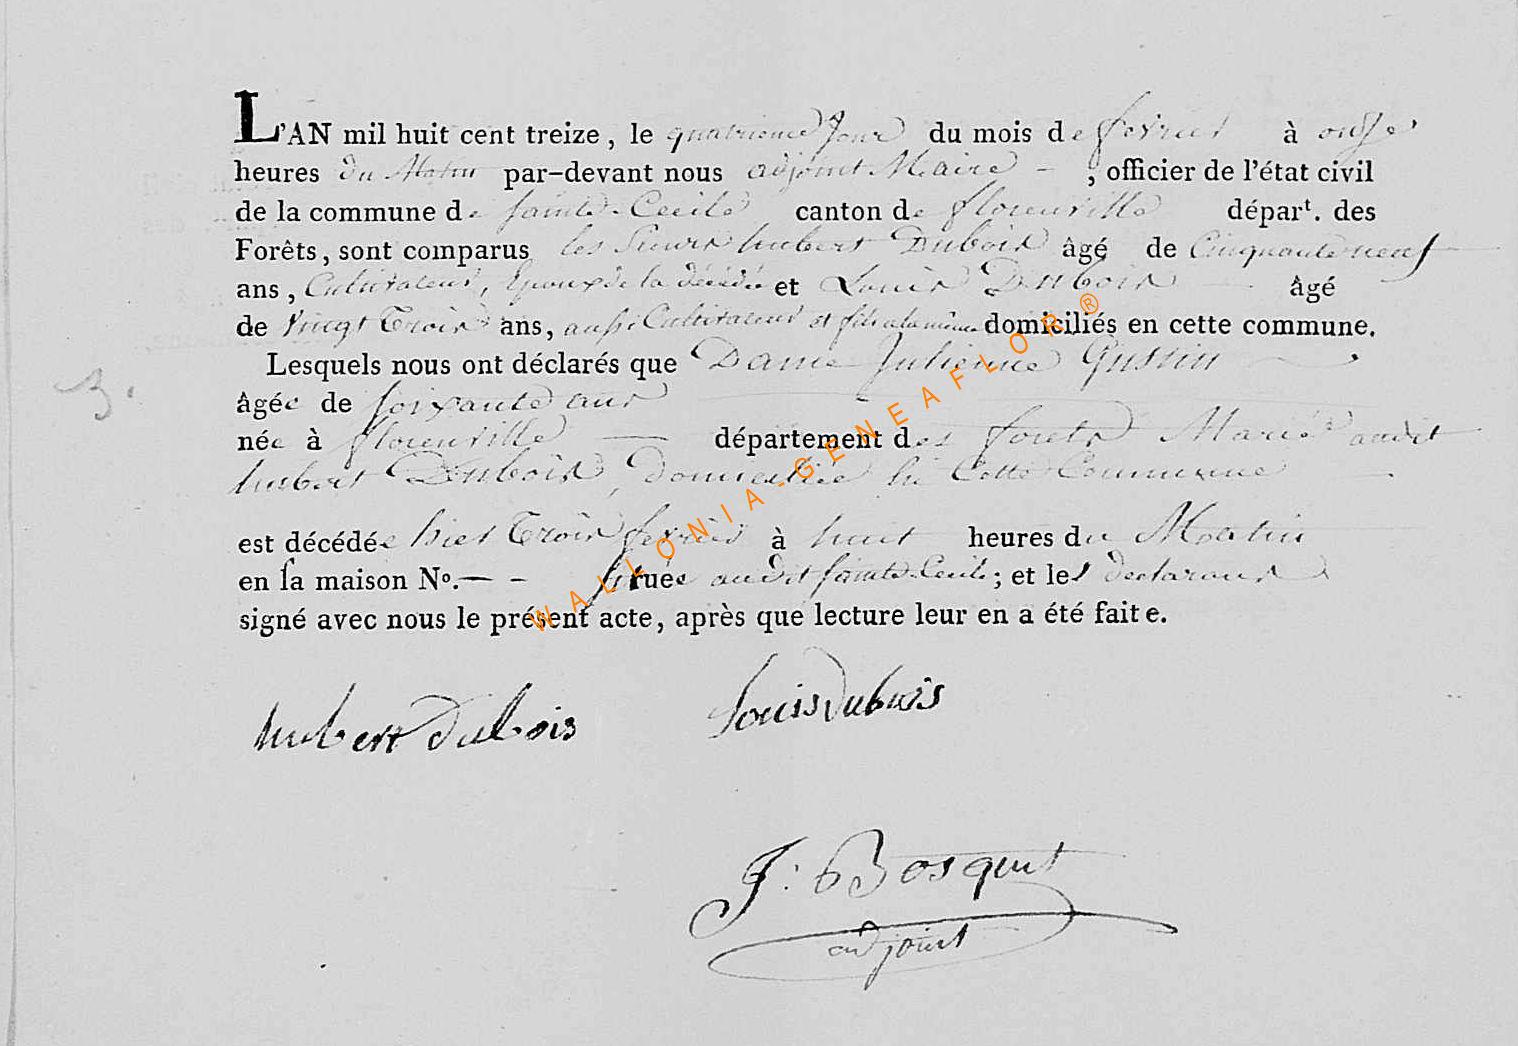 L'AN mil huit cent treize, le quatrieme Jour du mois de fevrier à onze
heures du Matin par-devant nous adjoint Maire - , officier de l'état civil
de la commune de Sainte-Cecile canton de florenville départ. des
Forêts, sont comparus les Sieurs hubert Dubois âgé de Cinquante neuf
ans, Cultivateur, Epoux de la décédée et Louis Dubois âgé
de Vingt Trois ans, aussi Cultivateur et fils a la même domiciliés en cette commune.
Lesquels nous ont déclarés que Dame Julienne Gussin
3.
âgée de soixante ans
née à florenville — département des forets Mariée audit
hubert Dubois, Domiciliée en Cette Commune
est décédée hier Trois fevrier à huit heures du Matin
en sa maison Nº. — - située audit Sainte-Cecile; et les declarans
signé avec nous le présent acte, après que lecture leur en a été faite.
hubert Dubois
Louis Dubois
J: B Bosquet
adjoint
WALLONIA-GENEAFLOR®